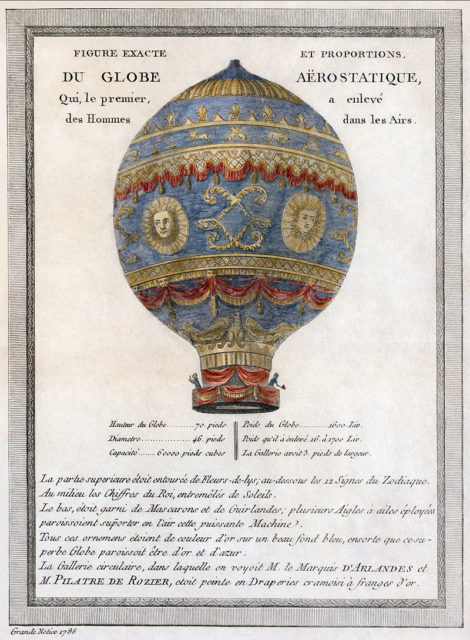 FIGURE EXACTE ET PROPORTIONS,
DU GLOBE AËROSTATIQUE,
Qui, le premier, a enlevé
des Hommes dans les Airs.
Hauteur du Globe..........70. pieds. Poids du Globe..........1600 Liv.
Diametre..................46. pieds Poids qu'il à enlevé 16 à 1700 Liv.
Capacité......60000 pieds cubes La Gallerie avoit 3. pieds de largeur.
La partie superieure étoit entourée de Fleurs-de-lys; au-dessous les 12 Signes du Zodiaque.
Au milieu les Chiffres du Roi, entremêlés de Soleils.
Le bas, étoit garni de Mascarons et de Guirlandes; plusieurs Aigles à ailes éployées
paroissoient suporter en l'air cette puissante Machine.
Tous ces ornemens étoient de couleur d'or sur un beau fond bleu, ensorte que ce su-
perbe Globe paroissoit être d'or et d'azur.
La Gallerie circulaire, dans laquelle on voyoit M. le Marquis D'ARLANDES et
M. PILATRE DE ROZIER, etoit peinte en Draperies cramoisi à franges d'or.
Grande Notice 1786